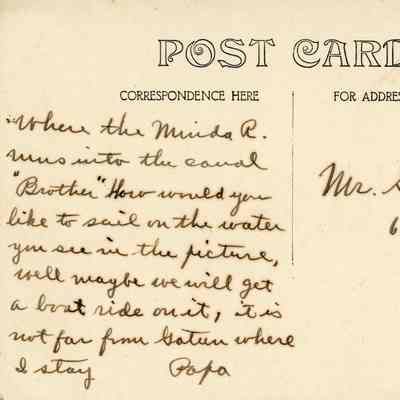 POST CARD
CORRESPONDENCE HERE
FOR ADDRES
Where the Minda R.
runs into the canal
"Brother" How would you
like to sail on the water
you see in the picture,
well maybe we will get
a boat ride on it, it is
not far from Gatun where
I stay Papa
Mr.
6